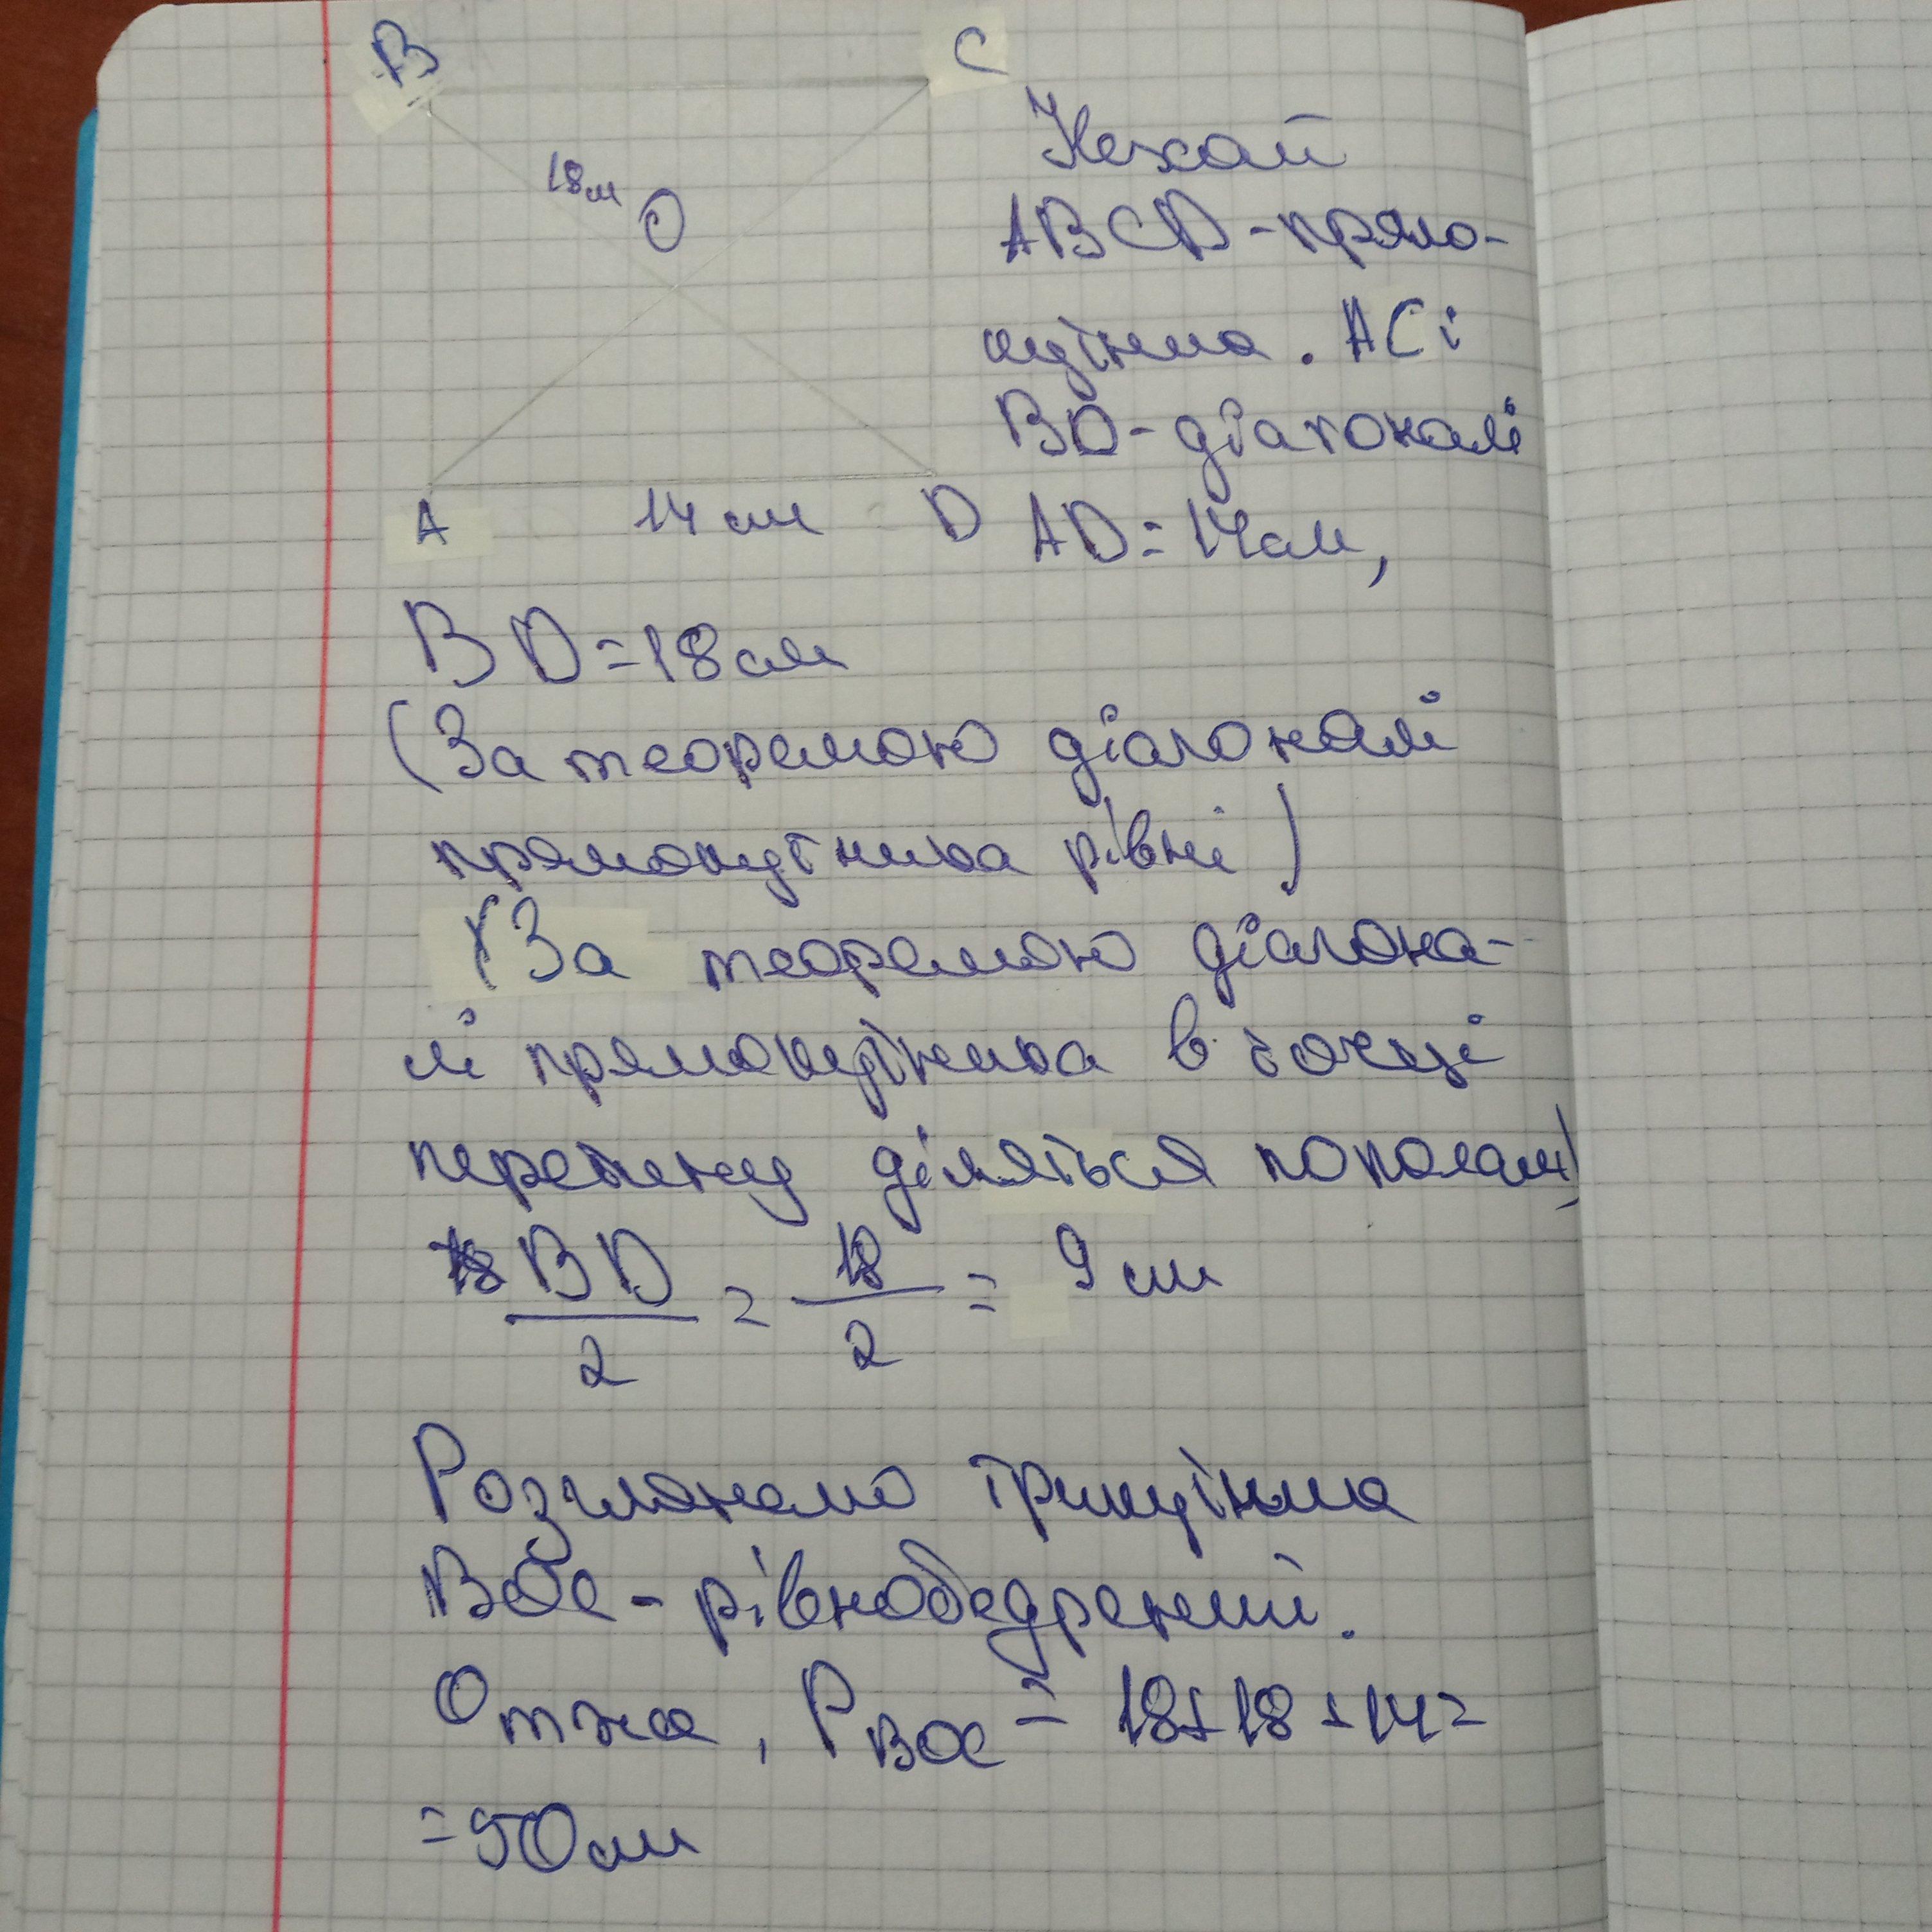 B
C
18см
O
Нехай
ABCD-прямо-
кутник. AC і
BD-діагоналі
A
14 см
D
AD=14см,
BD=18см
(За теоремою діагоналі
прямокутника рівні)
(За теоремою діагона-
лі прямокутника в точці
перетину діляться пополам)
BD/2 = 18/2 = 9 см
Розглянемо трикутника
BOC-рівнобедрений.
Отже, P BOC = 18+18+14=
=50см